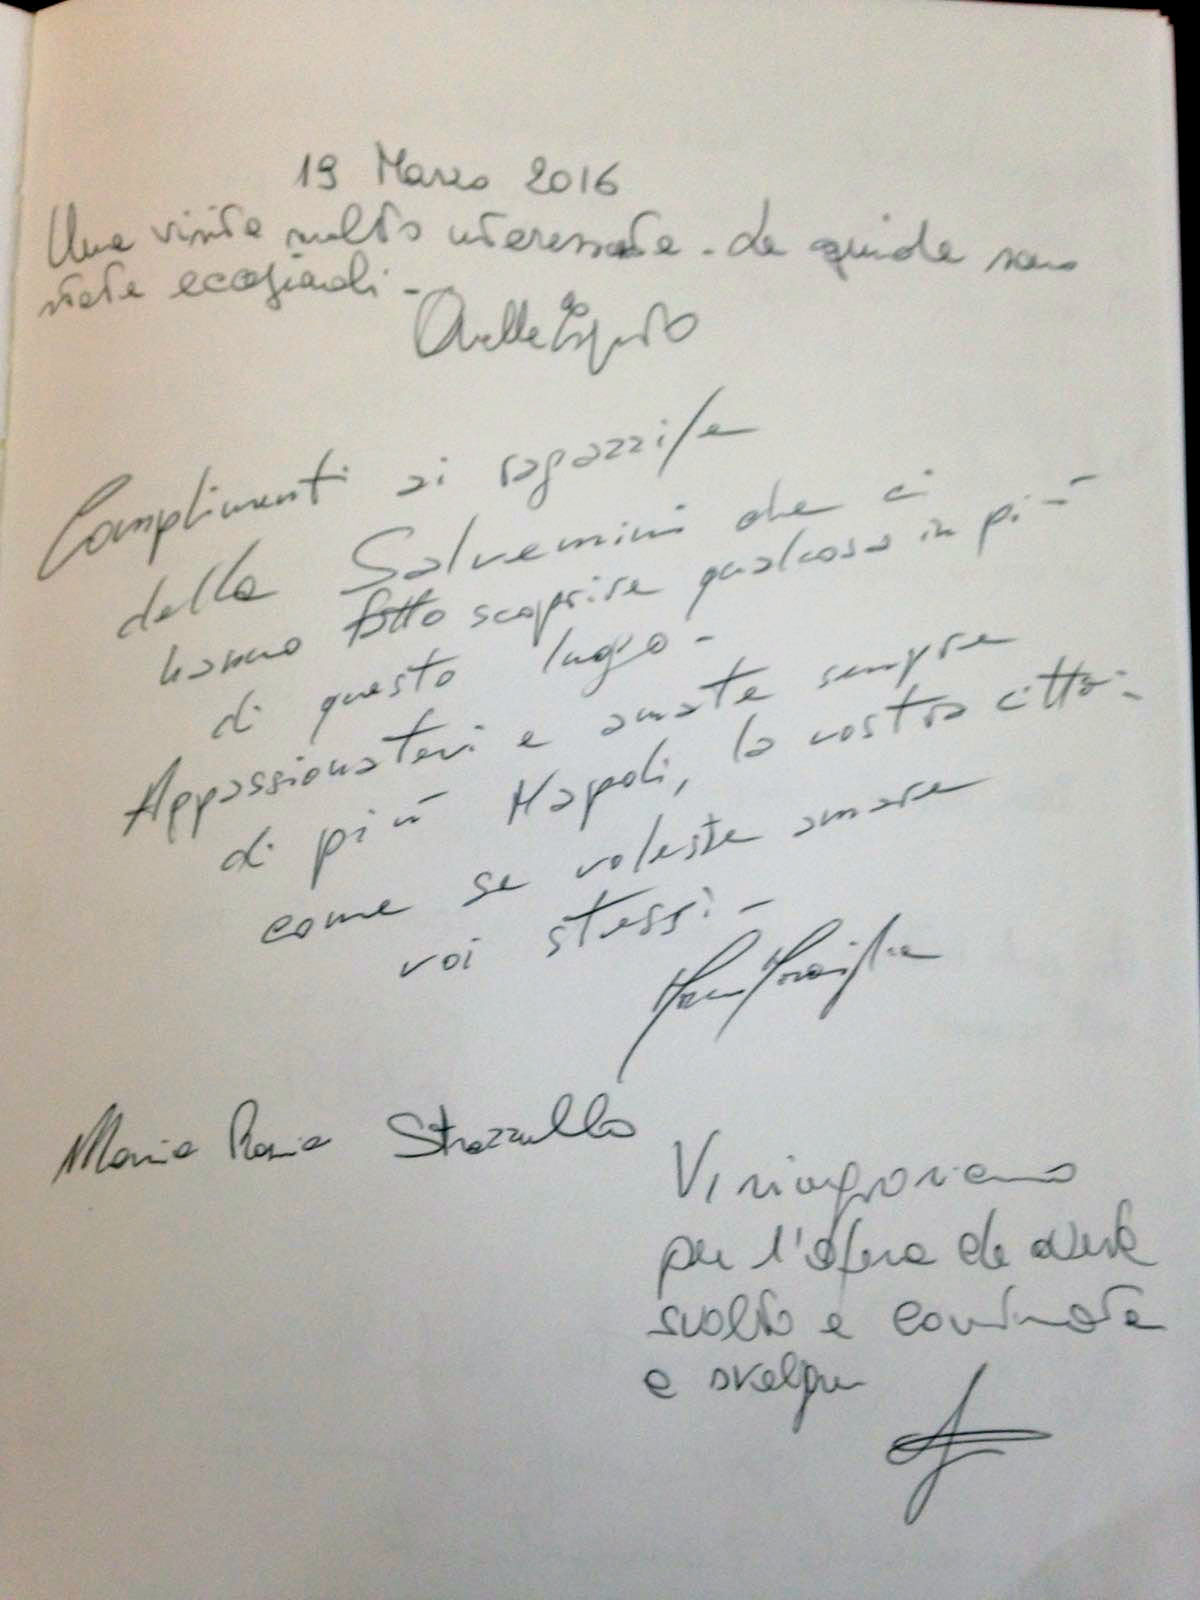 19 Marzo 2016
Una visita molto interessante. Le guide sono
state eccezionali -
Complimenti ai ragazzi/e
della Salvemini che ci
hanno fatto scoprire qualcosa in più
di questo luogo -
Appassionatevi e amate sempre
di più Napoli, la vostra città -
come se voleste amare
voi stessi -
Maria Rosaria Strazzullo
Vi ringraziamo
per l'opera che avete
svolto e continuate
a svolgere